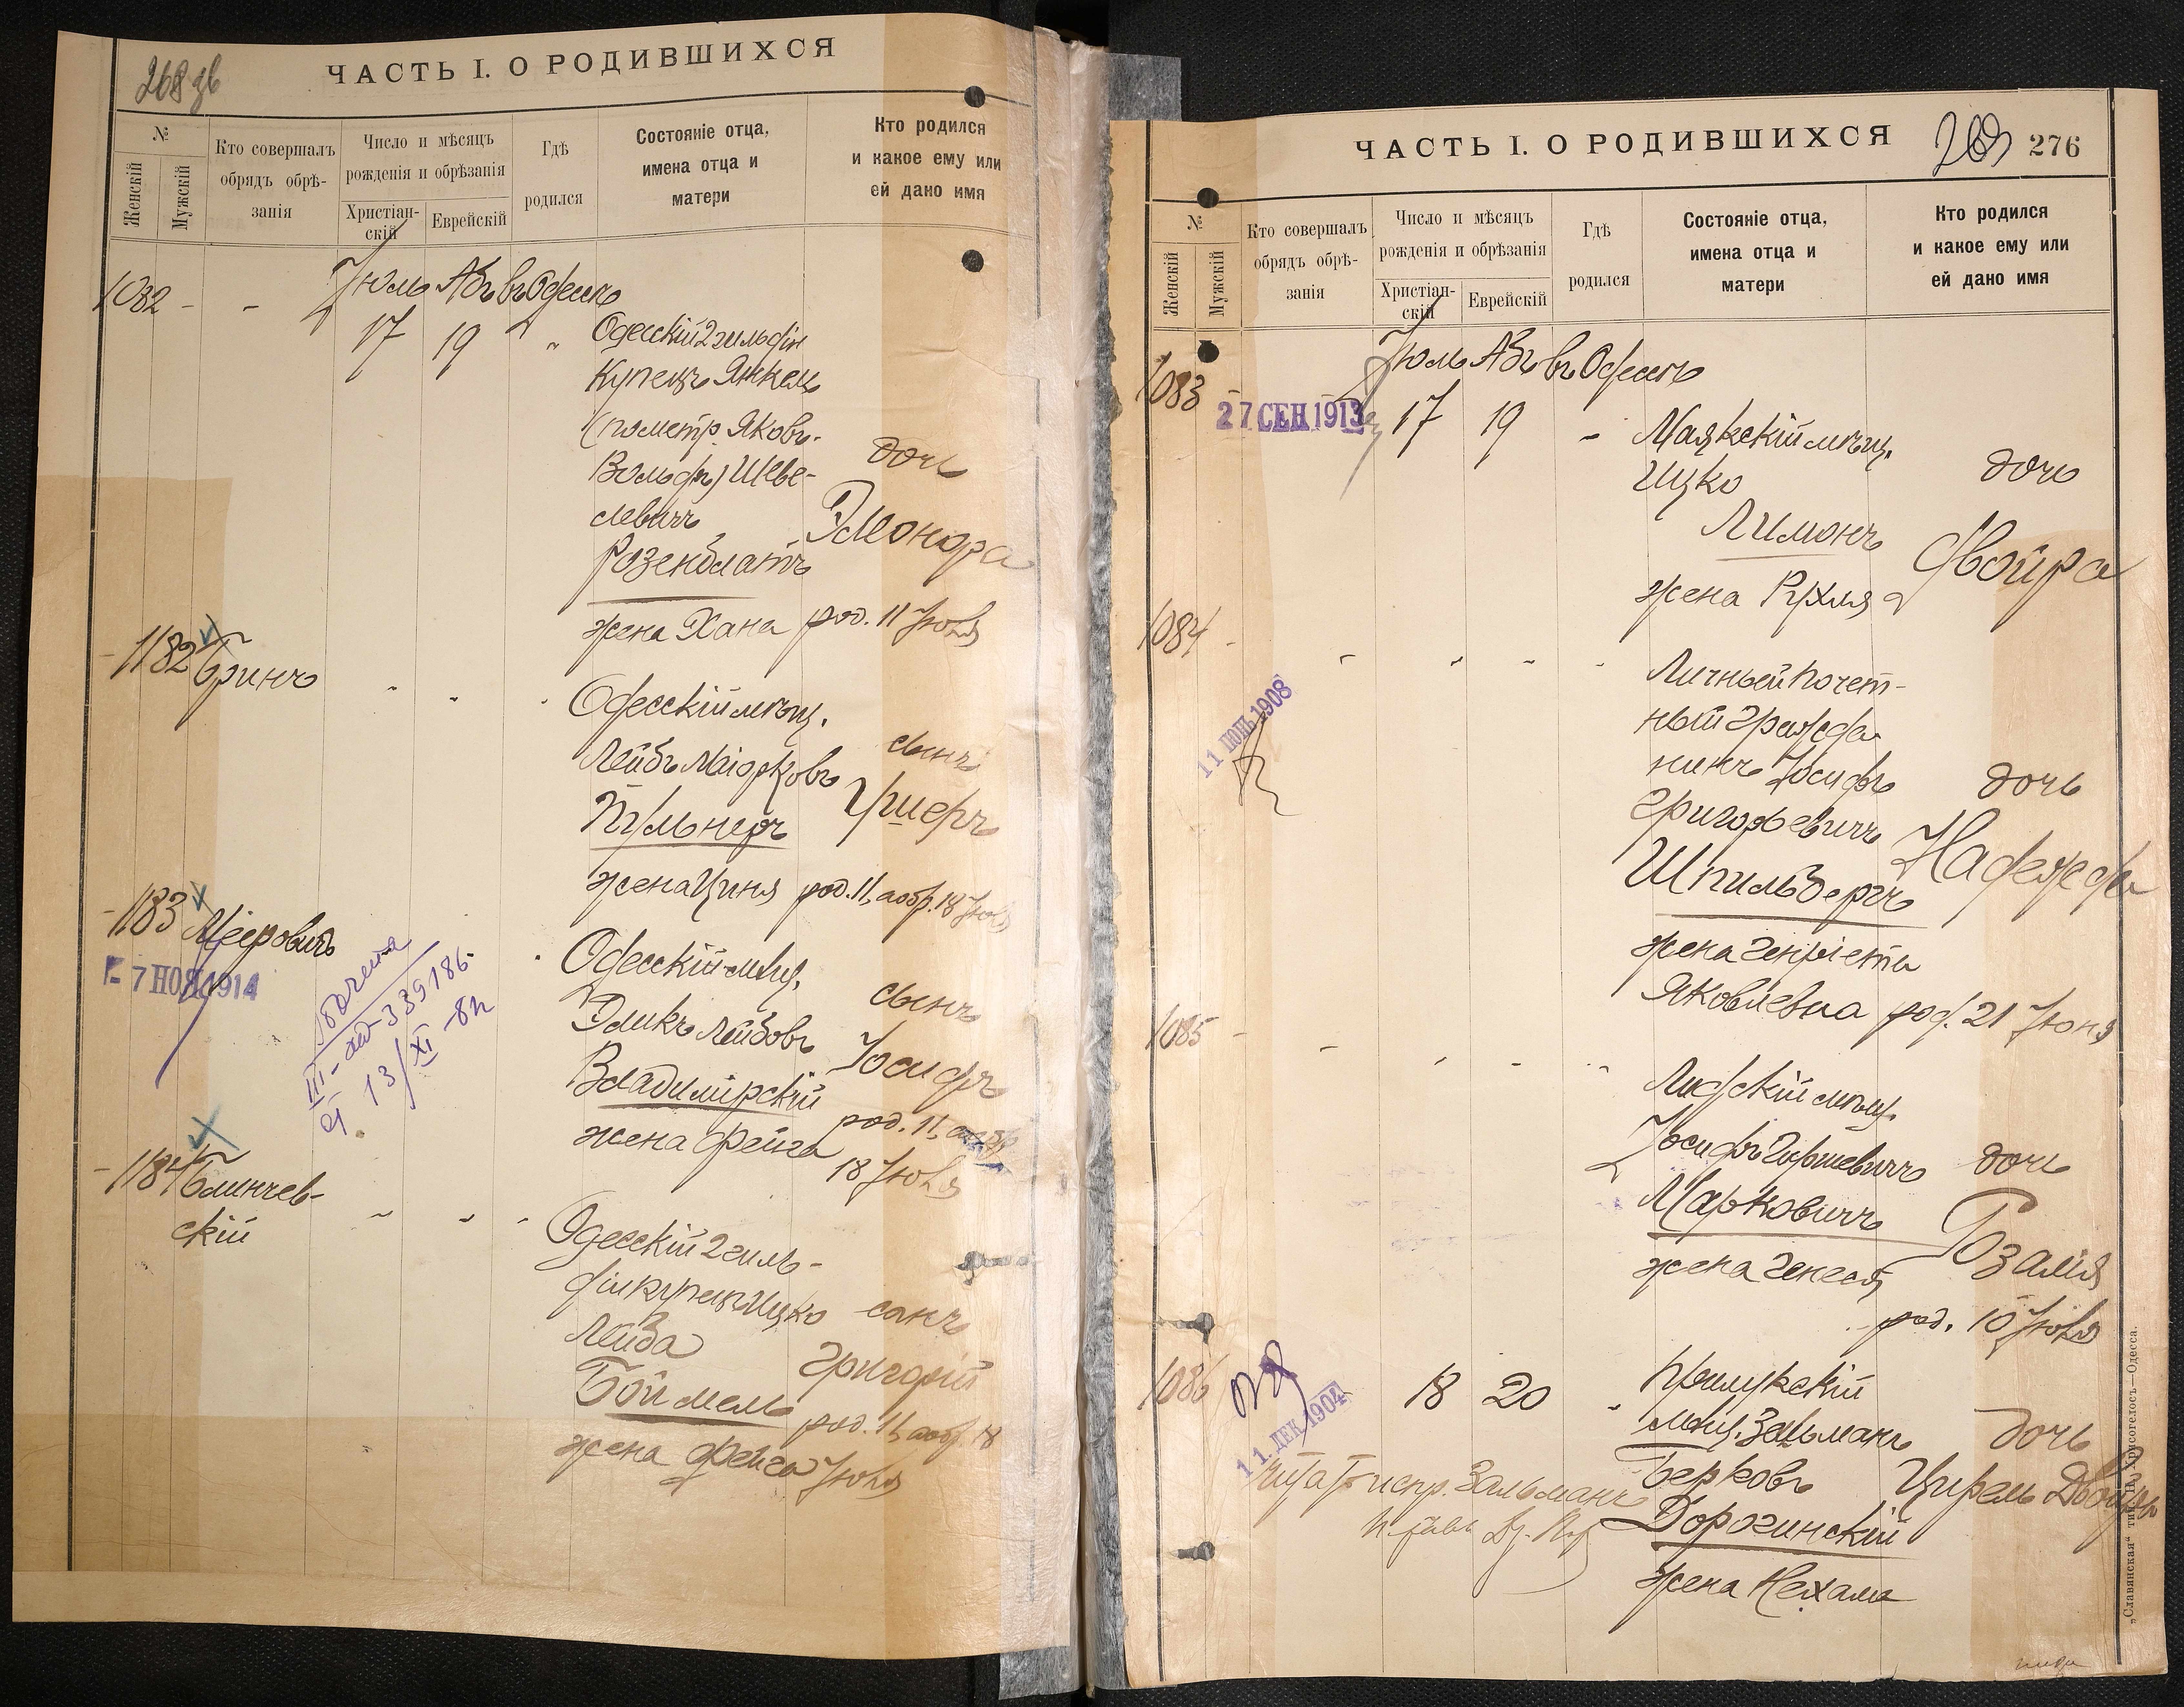 268 зв
ЧАСТЬ I. О РОДИВШИХСЯ
№
Женскій
Мужскій
Кто совершалъ
обрядъ обрѣ-
занія
Число и мѣсяцъ
рожденія и обрѣзанія
Христіан-
скій
Еврейскій
Гдѣ
родился
Состояніе отца,
имена отца и
матери
Кто родился
и какое ему или
ей дано имя
1082 - - Іюль Абъ въ Одессѣ
17 19 " Одесскій 2 гильдіи
Купецъ Янкель
(по метр. Яковъ-
Вольфъ) Шеве-
левичъ
Розенблатъ
жена Хана
дочь
Элеонора
род. 11 Іюля
- 1182 Гринъ
Одесскій мѣщ.
Лейбъ Маіорковъ
Пульнеръ
жена Циня
сынъ
Ушеръ
род. 11, а обр. 18 Іюля
- 1183 Мееровичъ
- 7 НОЯ 1914
III-339186-
13/XI-
Одесскій мѣщ.
Эликъ Лейбовъ
Владимірскій
жена Фейга
сынъ
Іосифъ
род. 11, а обр.
18 Іюля
- 1184 Блинчев-
скій
Одесскій 2 гиль-
діи купецъ Ицко
Лейба
Боймель
жена Фейга
сынъ
Григорій
род. 11, а обр. 18
Іюля
ЧАСТЬ I. О РОДИВШИХСЯ
269 276
№
Женскій
Мужскій
Кто совершалъ
обрядъ обрѣ-
занія
Число и мѣсяцъ
рожденія и обрѣзанія
Христіан-
скій
Еврейскій
Гдѣ
родился
Состояніе отца,
имена отца и
матери
Кто родился
и какое ему или
ей дано имя
Іюль Абъ въ Одессѣ
1083 -
27 СЕН 1913
17 19 - Маякскій мѣщ.
Ицко
Лимонъ
жена Рухля
дочь
Двойра
1084 -
11 1908
Личный почет-
ный гражда-
нинъ Іосифъ
Григорьевичъ
Шпильбергъ
жена Генріета
Яковлевна
дочь
Надежда
род. 21 Іюня
1085 -
Лидскій мѣщ.
Іосифъ Гиршевичъ
Марковичъ
жена Генеся
дочь
Розалія
род. 10 Іюля
1086
11. ДЕК 1904
18 20
Прилукскій
мѣщ. Зальманъ
Берковъ
Дорогинскій
жена Нехама
дочь
Цирель Двойра
испр. Зальманъ
„Славянская“ тип. Н. Хрисогелосъ—Одесса.